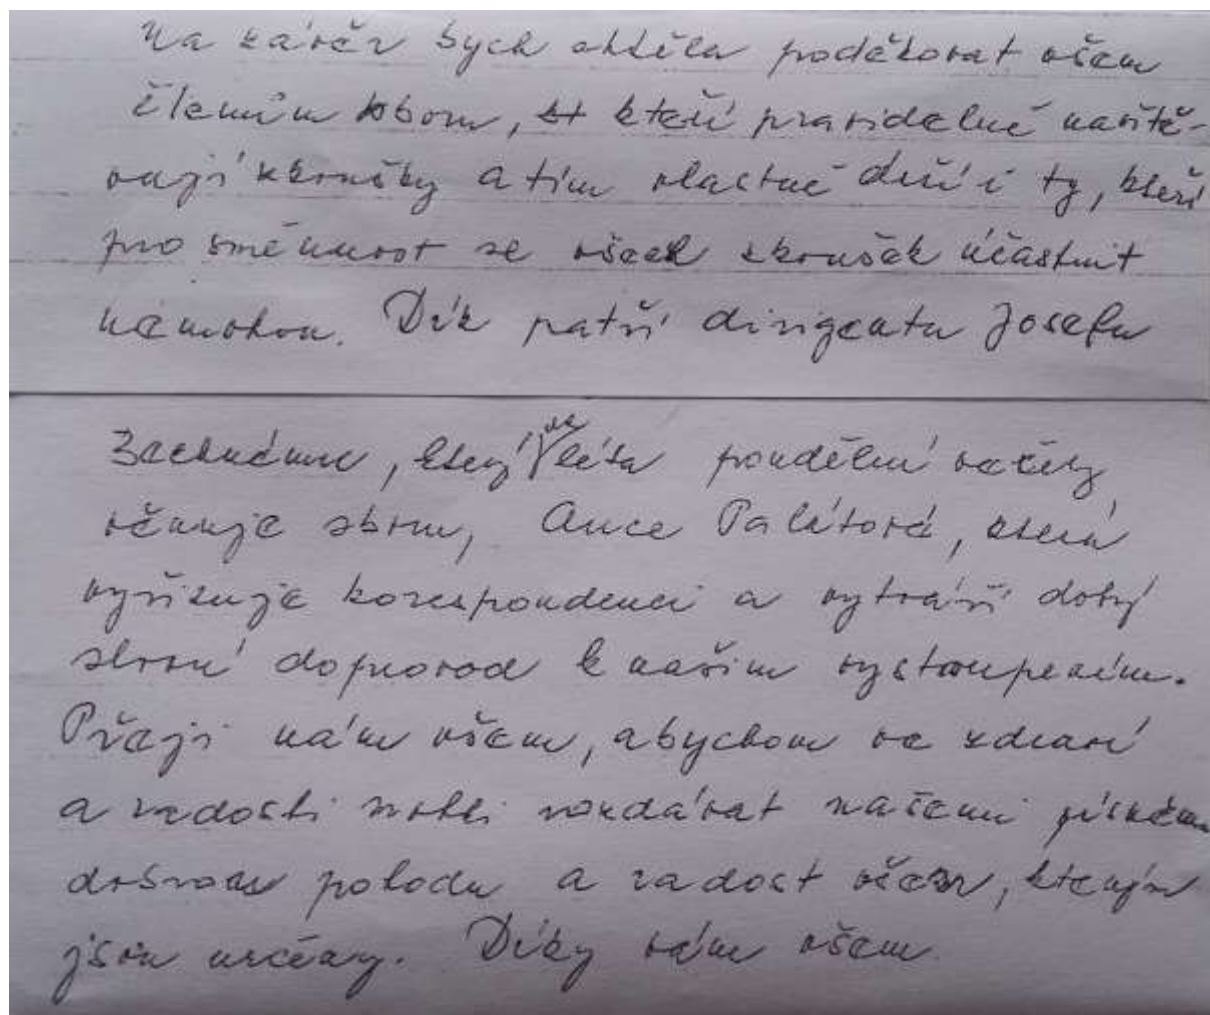 Na závěr bych chtěla poděkovat všem
členům sboru, kteří pravidelně navště-
vují zkoušky a tím vlastně drží i ty, kteří
pro směnnost se všech zkoušek účastnit
nemohou. Dík patří dirigentu Josefu
který léta pondělní večery
věnuje sboru, Ance Palátové, která
vyřizuje korespondenci a vytváří dobrý
slovní doprovod k našim vystoupením.
Přeji nám všem, abychom ve zdraví
a radosti mohli rozdávat našemi písněmi
dobrou pohodu a radost všem, kterým
jsou určeny. Díky vám všem